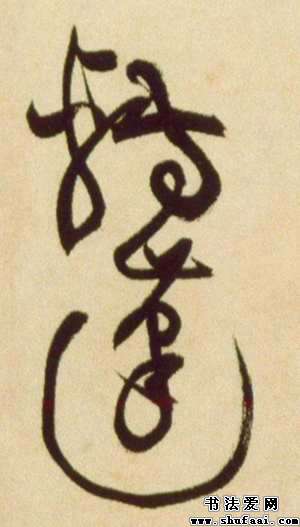 轉
蓬
书法爱网
www.shufaai.com